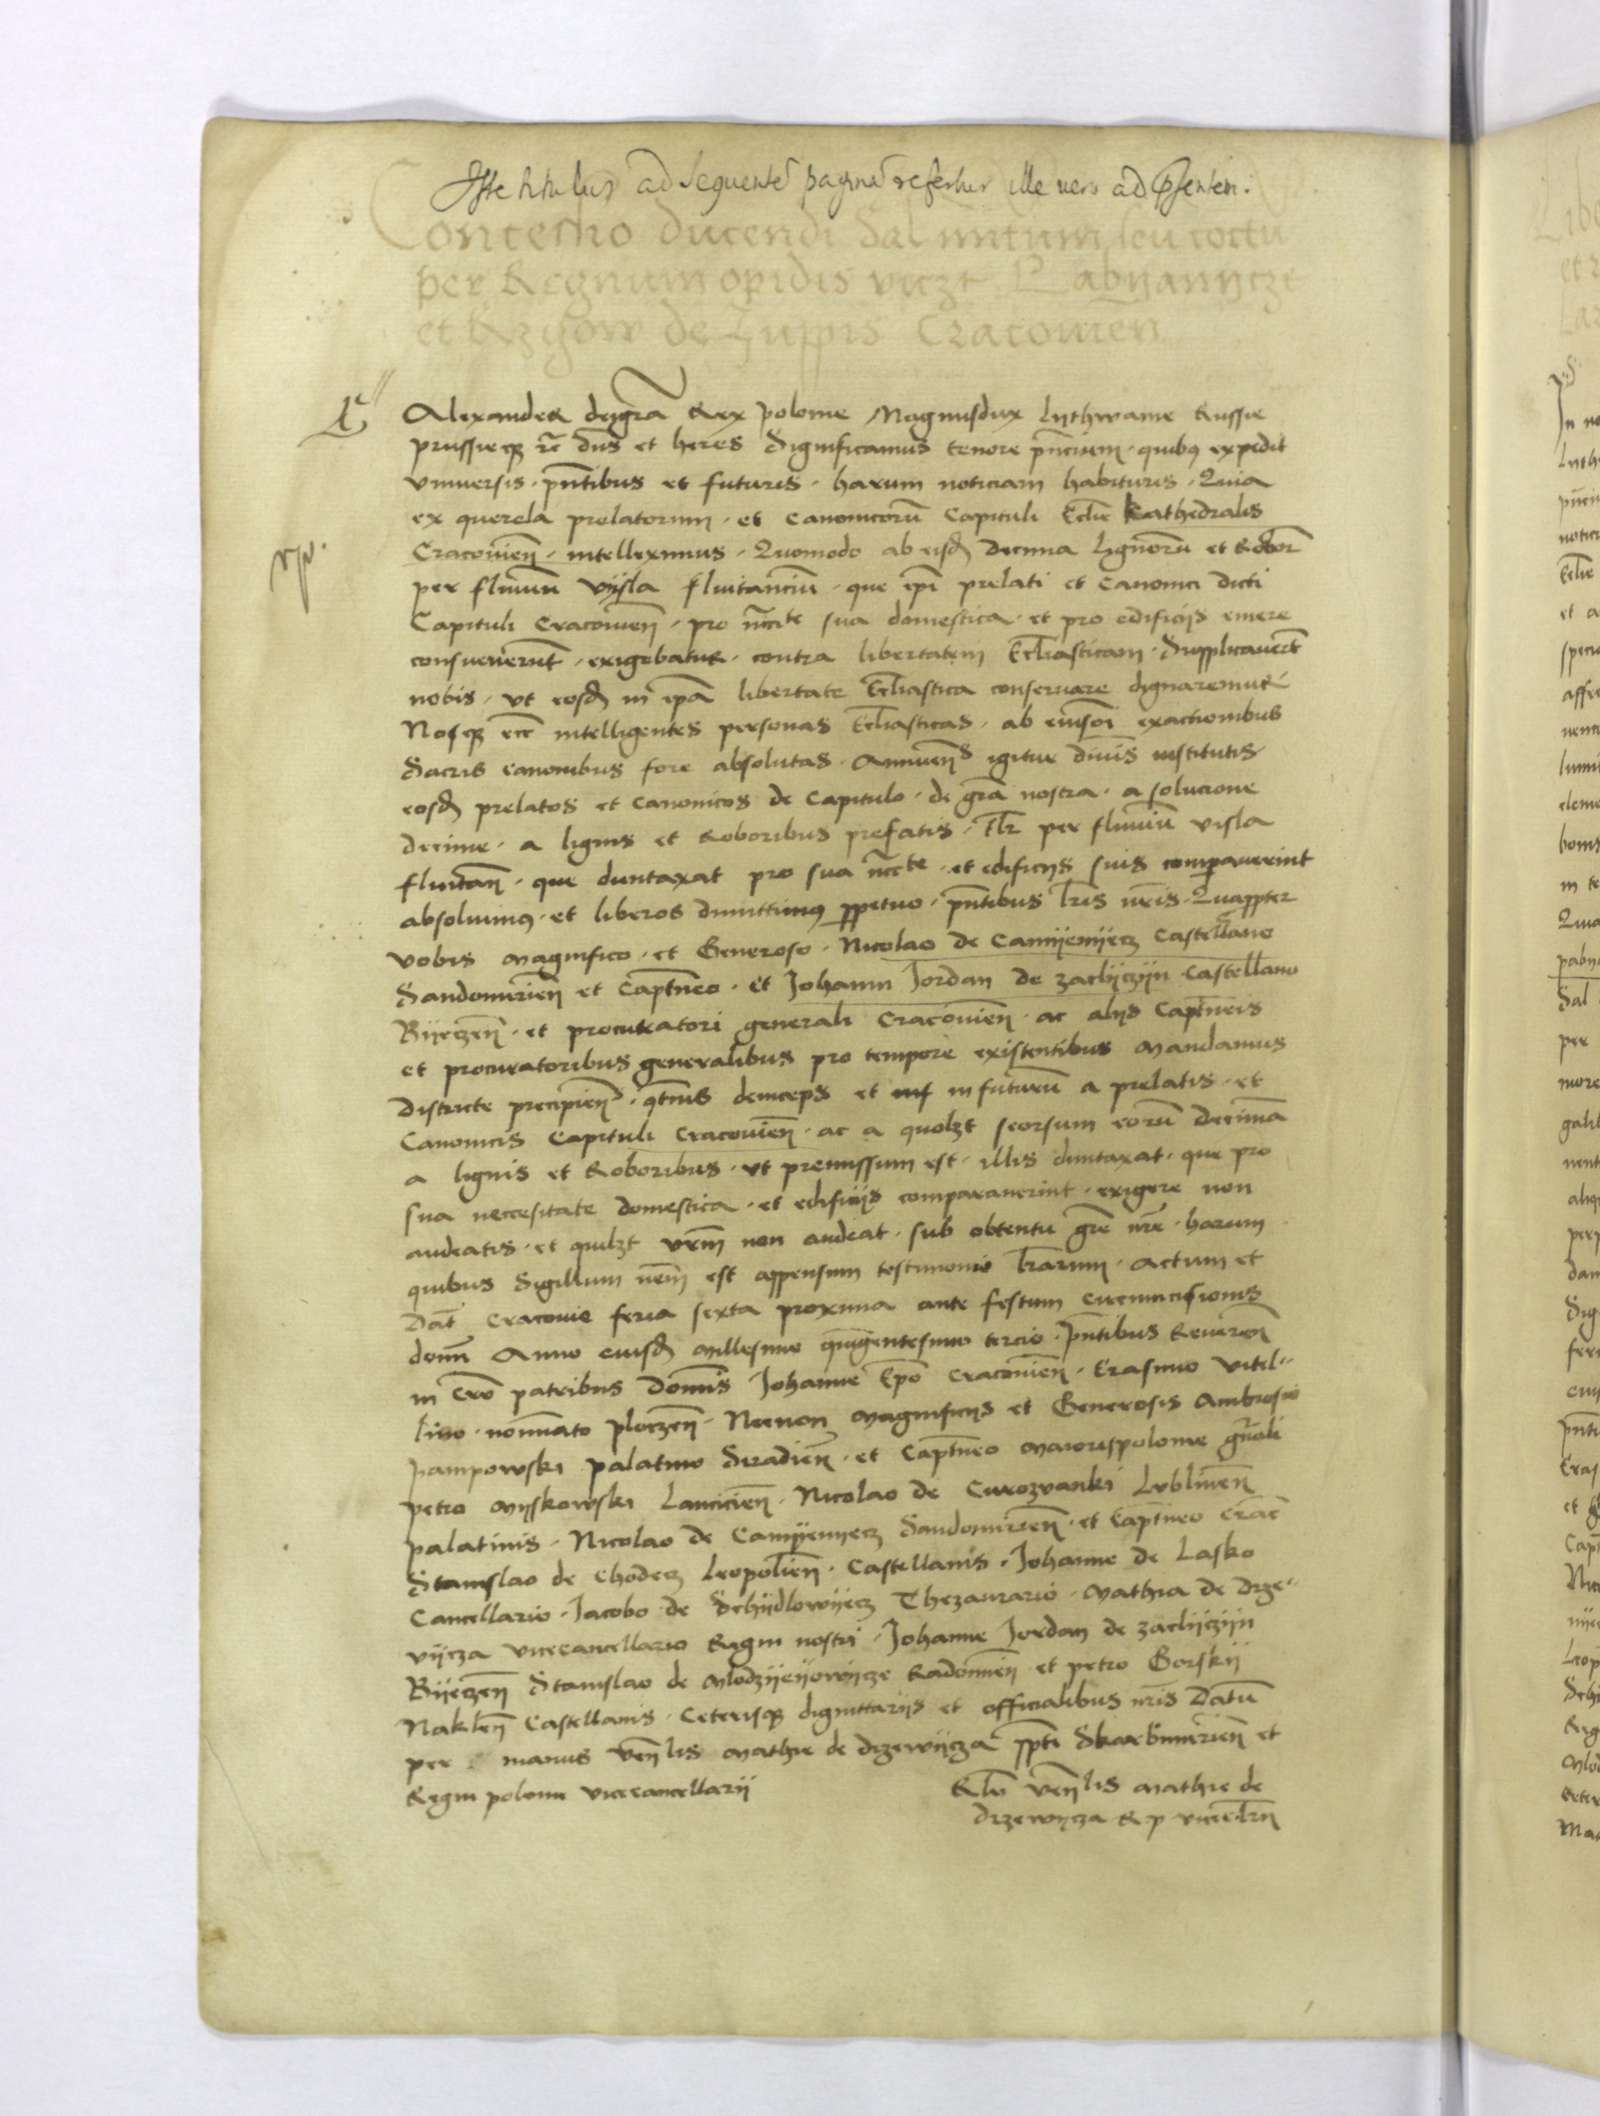 Iste titulus ad sequentē paginā refertur ille vero ad p̄sentem.
Concessio ducendi Sal minutum seu coctū
per Regnum opidis viczt Pabyanycze
et Rzgow de Zuppis Cracovien
Alexander deigrā Rex polonie Magnusdux Lythwanie Russie
prussieqȝ ꝛc̄ dn̄s et heres Significamus tenore pn̄cium · quibus expedit
vniuersis · pn̄tibus et futuris · harum noticiam habituris · Quia
ex querela prelatorum · et Canonicorū Capituli Eccl̄ie Kathedralis
Cracouien̄ · intelleximus · Quomodo ab eisd̄ decima lignorū et Robor̄
per fluuiū vysla fluitanciū · que ip̄i prelati et Canonici dicti
Capituli Cracouien̄ · pro nccīte sua domestica · et pro edificiis emere
consueuerūt · exigebatur · contra libertatem Eccl̄iasticam · Supplicauer̄t
nobis · vt eosd̄ in ip̄a libertate Eccl̄iastica conseruare dignaremur
Nosqȝ ecc intelligentes personas Eccl̄iasticas · ab eiusm̄oi exactionibus
Sacris canonibus fore absolutas · Annuen̄s igitur diuīs institutis
eosd̄ prelatos et Canonicos de Capitulo · de grā nostra · a solucione
decime · a lignis et Roboribus prefatis · tlr̄ per fluuiū visla
fluitan̄ · que duntaxat pro sua nccīte · et edificiis suis comparauerint
absoluimus · et liberos dimittimus ꝑpetuo · pn̄tibus lr̄is nr̄is · Quappter
vobis magnifico · et Generoso · Nicolao de Camyenyecz Castellano
Sandomirien̄ et Captn̄eo · Et Johanni Jordan de zaclyczyn Castellano
Byeczen̄ · et procuratori generali Cracouien̄ · ac aliis Captn̄eis
et procuratoribus generalibus pro tempore existentibus mandamus
districte precipien̄s · qt̄nus deinceps et inf in futurū a prelatis · et
Canonicis Capituli Cracouien̄ · ac a quolzt seorsum eorū decimā
a lignis et Roboribus · vt premissum est · illis duntaxat · que pro
sua neccesitate domestica · et edificiis comparauerint · exigere non
audeatis · et quilzt vr̄m non audeat · sub obtentu grē nr̄e · harum
quibus Sigillum nr̄m est appensum testimonio lr̄arum · Actum et
Dat̄ Cracouie feria sexta proxima ante festum Circumcisionis
domī Anno eiusd̄ millesimo quīgentesimo tercio · Pn̄tibus Reueren̄
in Cr̄o patribus Domīs Johanne Ep̄o Cracouien̄ · Erasmo vitel⸗
lino · nominato ploczen̄ · Necnon magnificis et Generosis Ambrosio
pampowski palatino Siradien̄ · et Captn̄eo maiorispolonie gn̄rali
petro myskowski Lancicien̄ · Nicolao de Curozvanki Lublinen̄
palatinis · Nicolao de Camyenyecz Sandomirien̄ · et Captn̄eo Crac̄
Stanislao de Chodecz Leopolien̄ · Castellanis · Johanne de Lasko
Cancellario · Jacobo de Schydlowyecz Thezaurario · Mathia de drze⸗
vycza vicecancellario Regni nostri · Johanne Jordan de zaclyczyn
Byeczen̄ Stanislao de Mlodzyeyowycze Radomien̄ · et petro Gorsky
Naklen̄ Castellanis · Ceterisqȝ dignittariis et officialibus nr̄is Datū
per manus Ven̄lis mathie de drzewycza ppti Skarbimirien̄ et
Regni polonie vicecancellarii
Rlō ven̄lis mathie de
drzewycza R p vicecl̄rii